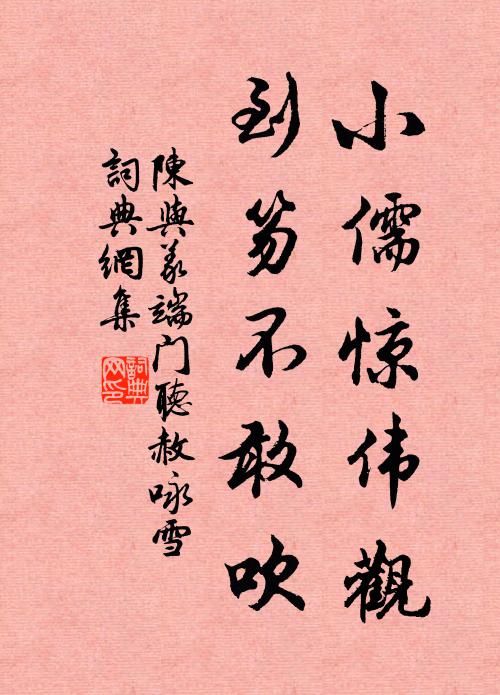 小儒惊伟觀
到笏不敢吹
陳與義端門聽赦咏雪
詞典網集
詞典网印